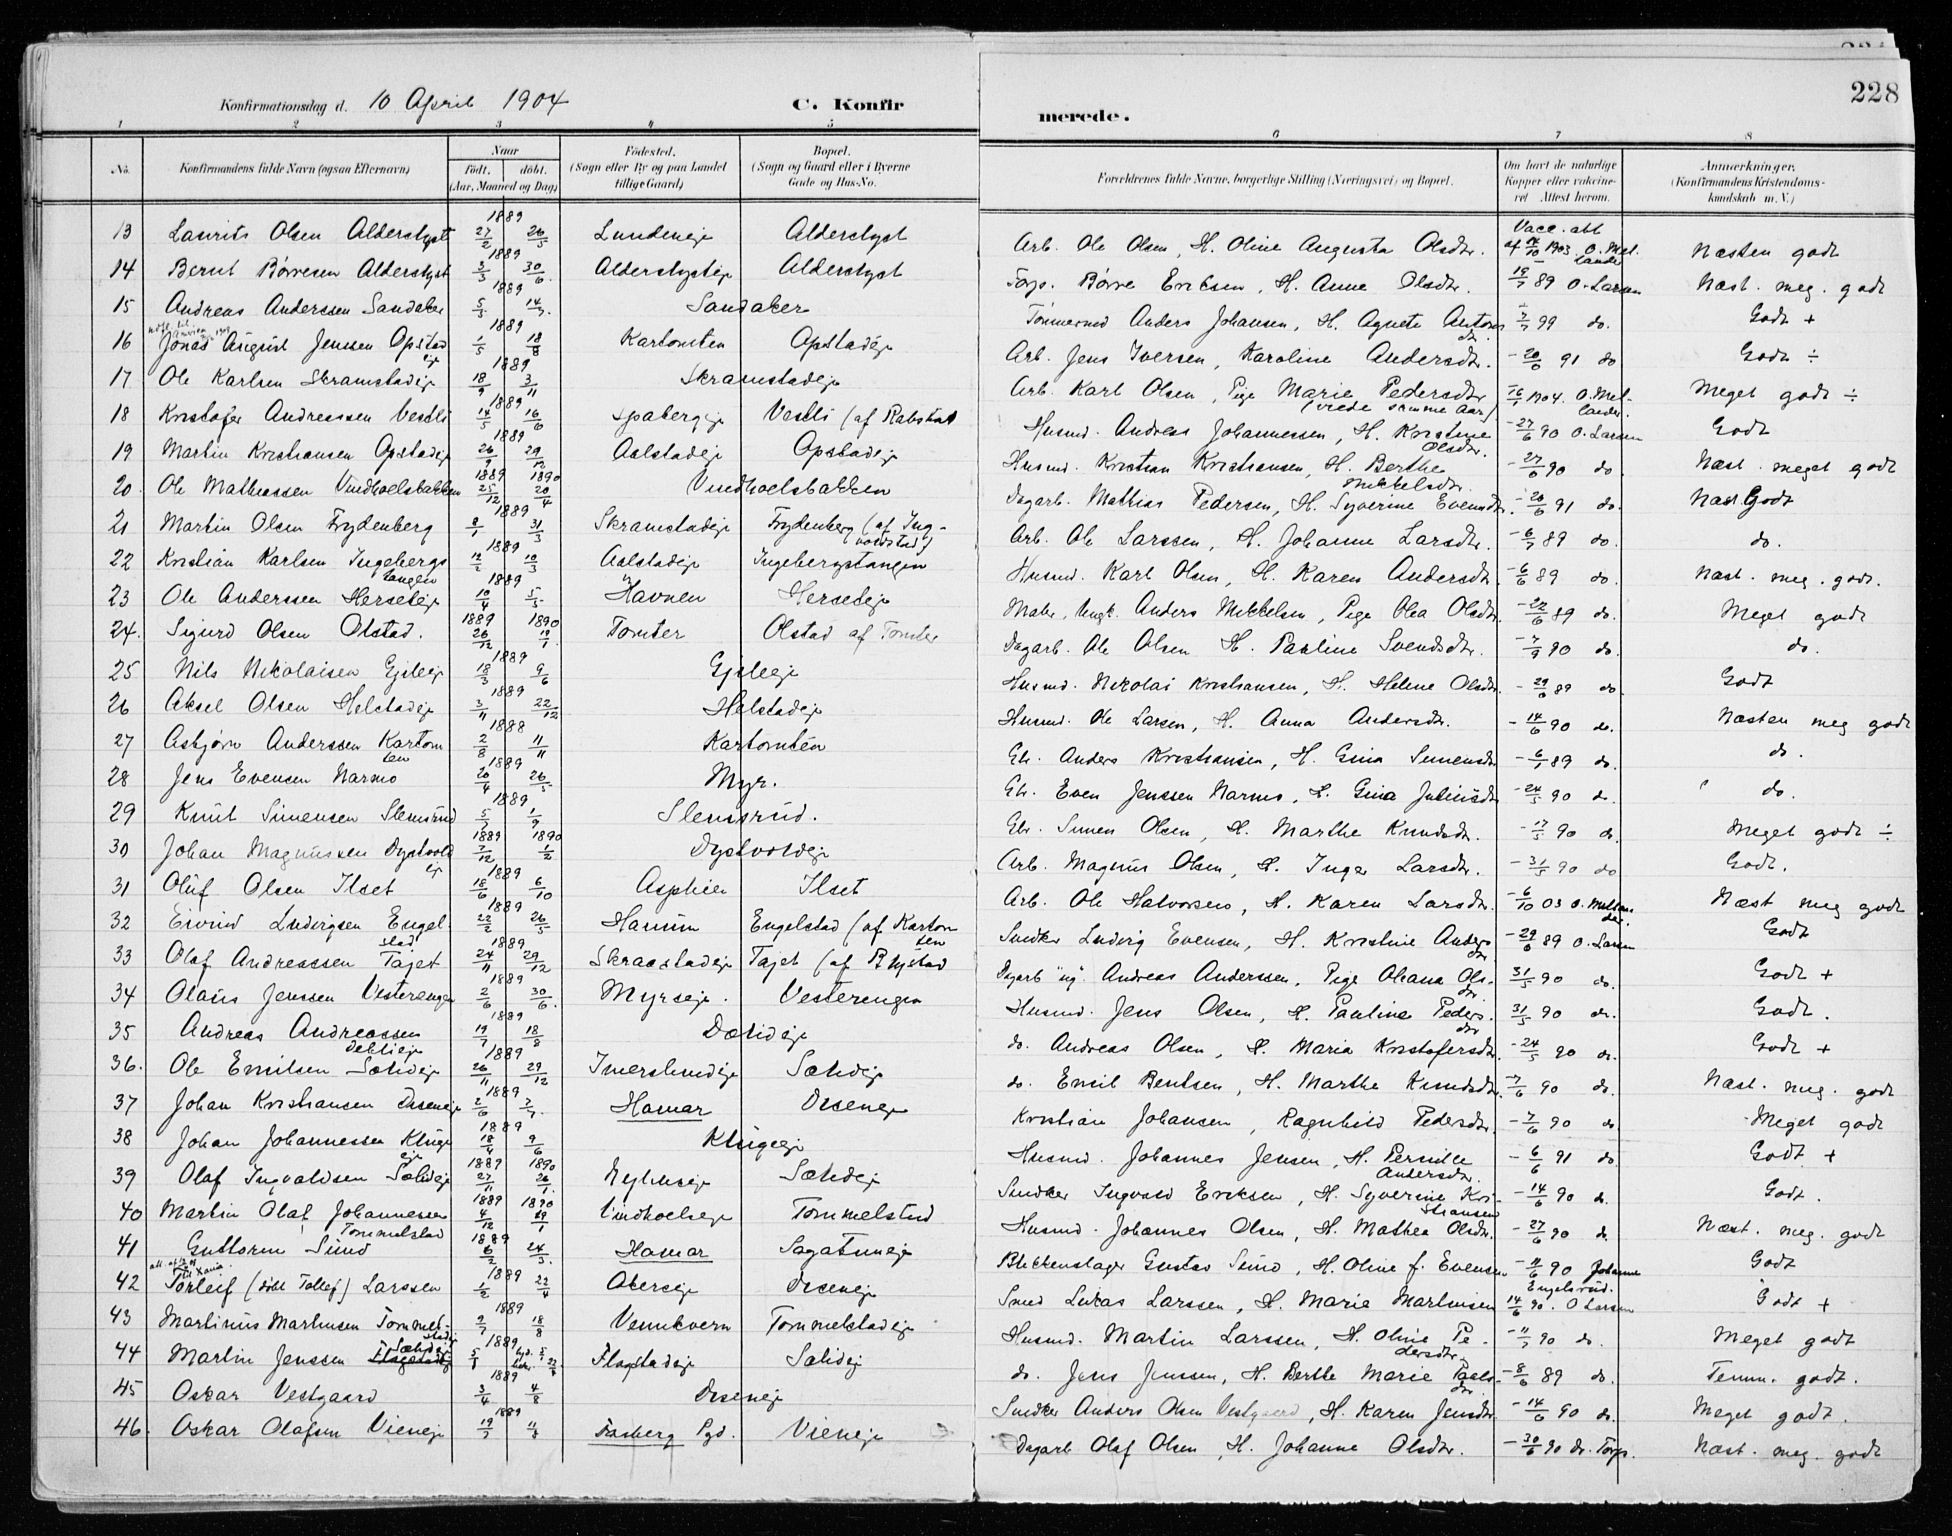 228
Konfirmationsdag d. 10 April 1904 C. Konfirmerede.
1 2 3 4 5 6 7 8
No. Konfirmandens fulde Navn (ogsaa Efternavn) Naar født. døbt. (Aar, Maaned og Dag) Fødested. (Sogn eller By og paa Landet tillige Gaard) Bopæl. (Sogn og Gaard eller i Byerne Gade og Hus-No. Forældrenes fulde Navne, borgerlige Stilling (Næringsvei) og Bopæl. Om havt de naturlige Kopper eller vakcineret. Attest herom. Anmærkninger. (Konfirmandens Kristendomskundskab m. V.)
13 Laurits Olsen Alderslyst 1889 27/2 26/5 Lundeneje Alderslyst Arb. Ole Olsen, H. Oline Augusta Olsdtr. Vacc. att Næsten godt
14 Bernt Børresen Alderslyst 1889 3/3 30/6 Alderslysteje Alderslyst Torp. Børre Eriksen, H. Anne Olsdtr. 19/7 89 O. Larsen Næst. meg. godt
15 Andreas Anderssen Sandaker 1889 5/5 14/7 Sandaker Tømmermd Anders Johansen, H. Agnete Antonsdtr. 99 do. Godt +
16 Jonas August Jenssen Opstadeje 1889 1/5 18/8 Kartomten Opstadeje Arb. Jens Iversen, Karoline Andersdtr. 20/6 91 do Godt ÷
17 Ole Karlsen Skramstadeje 1889 18/9 3/11 Skramstadeje Arb. Karl Olsen, Pige Marie Pedersdtr (viede samme Aar) 1904 O. Mellander. Meget godt ÷
18 Kristofer Andreassen Vestli 1889 14/5 16/6 Spabergeje Vestli (af Rabstad Husmd. Andreas Johannessen, H. Kristine Olsdtr. 27/6 90 O. Larsen Godt
19 Martin Kristiansen Opstadeje 1889 26/9 29/12 Aalstadeje Opstadeje Husmd. Kristian Kristiansen, H. Berthe Mikkelsdtr. 27/6 90 do. Næst. meget godt
20. Ole Mathiassen Vindhoelsbakken 1889 1890 25/12 20/4 Vindhoelsbakken Dagarb. Mathias Pedersen, H. Syverine Evensdtr. 20/6 91 do. Næst Godt
21 Martin Olsen Frydenberg 1889 8/1 31/3 Skramstadeje Frydenberg (af Ingvoldstad) Arb. Ole Larssen, H. Johanne Larsdtr. 6/7 89 do. do.
22 Kristian Karlsen Ingebergstangen 1889 12/2 10/3 Aalstadeje Ingebergstangen Husmd. Karl Olsen, H. Karen Andersdtr. 6/6 89 do. Næst. meg. godt.
23 Ole Anderssen Herseteje 1889 10/4 5/5 Havnen Herseteje Maler, Ungk. Anders Mikkelsen, Pige Olea Olsdtr. 22/6 89 do. Meget godt
24. Sigurd Olsen Olstad. 1889 1890 26/12 19/1 Tomter Olstad af Tomter Dagarb. Ole Olsen H. Pauline Svendsdtr. 7/9 90 do. do.
25 Nils Nikolaisen Gjileeje 1889 18/3 9/6 Gjileeje Husmd. Nikolai Kristiansen, H. Helene Olsdtr. 29/6 89 do. Godt
26 Aksel Olsen Helstadeje 1889 3/11 22/12 Helstadeje Husmd. Ole Larsen, H. Anna Andersdtr. 14/6 90 do. Næsten meg godt
27 Asbjørn Anderssen Kartomten 1888 2/8 11/11 Kartomten Gbr. Anders Kristiansen, H. Gina Simensdtr 6/1 89 do. do.
28 Jens Evensen Narmo 1889 20/4 26/5 Myr. Gbr. Even Jenssen Narmo, H. Gina Juliusdtr 24/5 90 do. do.
29 Knut Simensen Slemsrud 1889 5/7 1/9 Slemsrud. Gbr. Simen Olsen, H. Marthe Knudsdtr. 17/5 90 do. Meget godt ÷
30 Johan Magnussen Dystvoldeje 1889 1890 7/12 1/2 Dystvoldeje Arb. Magnus Olsen, H. Inger Larsdtr. 31/5 90 do Godt.
31 Oluf Olsen Ilset 1889 18/6 6/10 Asphien Ilset Arb. Ole Halvorsen, H. Karen Larsdtr. 6/10 03 O. Mellander Næst meg godt
32 Eivind Ludvigsen Engelstad 1889 22/2 26/5 Hamin Engelstad (af Kartomten Snedker Ludvig Evensen, H. Kristine Andersdtr 29/6 89 O. Larsen Godt
33 Olaf Andreassen Tajet 1889 24/11 29/12 Skraastadeje Tajet (af Rustad Dagarb ug. Andreas Anderssen, Pige Oleana Olsdtr. 31/5 90 do. Godt +
34 Olaus Jenssen Vesterengen 1889 2/6 30/6. Myrseje. Vesterengen Husmd. Jens Olsen, H. Pauline Pedersdtr. 31/5 90 do. Godt.
35 Andreas Andreassen Dæhlieje 1889 19/7 18/8 Dælideje do. Andreas Olsen, H. Maria Kristofersdtr. 24/5 90 do. Godt +
36. Ole Emilsen Sælideje 1889 26/11 29/12 Imerslundeje Sælideje do. Emil Bentsen, H. Marthe Knudsdtr. 7/6 90 do. Næst. meg. godt
37 Johan Kristiansen Diseneje 1889 2/6 7/7. Hamar Diseneje Kristian Johansen, Ragnhild Pedersdtr. 7/6 90 do Meget godt
38 Johan Johannessen Klugeeje 1889 18/4 9/6 Klugeeje Husmd. Johannes Jensen, H. Pernille Andersdtr. 6/6 91 do. Godt +
39 Olaf Ingvaldsen Sælideje 1889 1890 27/11 26/1. Nyhuseje Sælideje Snedker Ingvald Eriksen, H. Syverine Kristiansen 14/6 90 do. Godt.
40 Martin Olaf Johannessen Tommelstad 1889 1890 4/12 19/1 Vindhoelseje Tommelstad Husmd. Johannes Olsen, H. Mathea Olsdtr. 27/6 90 do. Næst. meg. godt
41 Guttorm Sund 1889 6/2 24/3. Hamar Sagatuneje Blikkenslager Gustav Sund, H. Oline f. Evensen 11/6 90 Johanne Engelsrud. Godt
42 Torleif (døbt Tollef) Larssen 1889 1/2 22/4 Oterseje Diseneje Smed Lukas Larssen, H. Marie Martinsen 14/6 90. O Larsen Godt +
43 Martinus Martinsen Tommelstadeje 1889 9/7 18/8 Vennkvern Tommelstadeje Husmd. Martin Larssen, H. Oline Pedersdtr. 11/7 90 do. Meget godt
44 Martin Jenssen Flagstadeje Sælideje 1889 5/1 Flagstadeje Sælideje do. Jens Jenssen, H. Berthe Marie Paulsdtr. 8/6 89 do. Temm. godt.
45 Oskar Vestgaard 1889 3/4 4/8 Diseneje Snedker Anders Olsen Vestgaard, H. Karen Jensdtr. 14/6 90 do. Meget godt.
46. Oskar Olafsen Vieneje 1889 19/7 11/8 Faaberg Pgd. Vieneje Dagarb Olaf Olsen, H. Johanne Olsdtr. 30/6 90 do. Torp. Næst. meg. godt